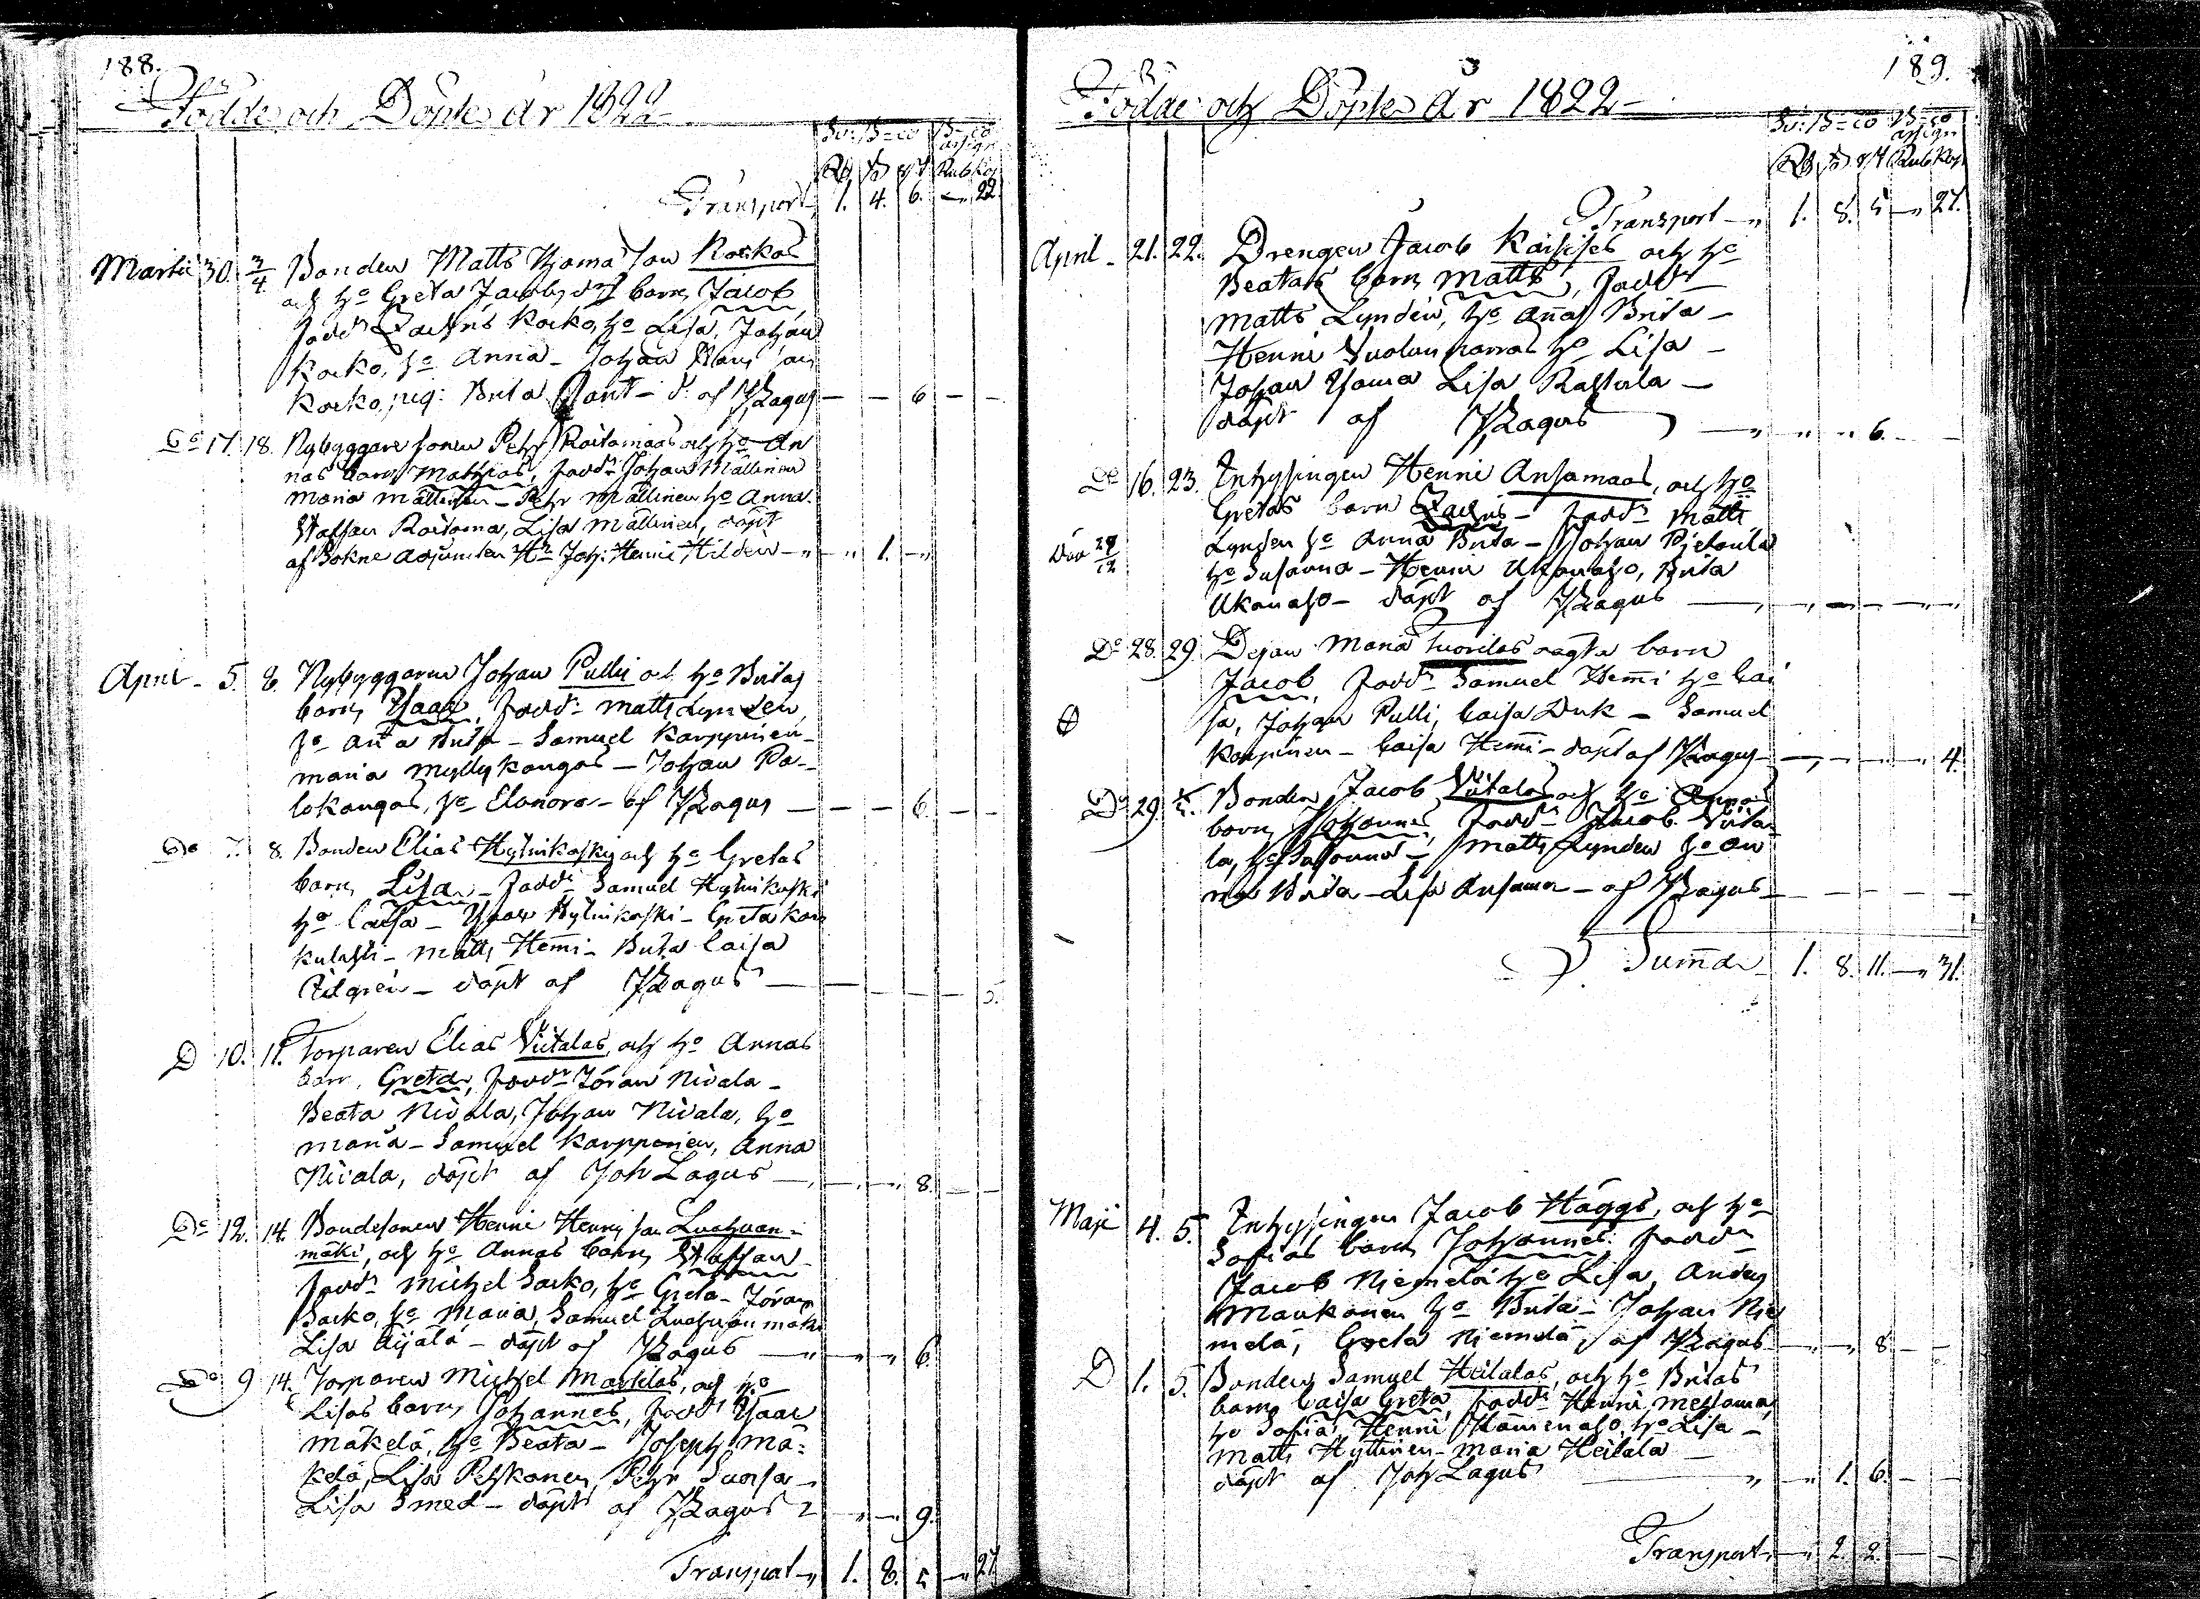 188.
Födde och Döpte År 1822
Sv: B=co B=co assign
Rd ß rst Rub Kop
Transport 1. 4. 6. — 22.
Martii 30. 3/4 Bonden Matts Hjama Son Korkos
och ho Greta Jacobsdr barn Jacob
fadd Zachris Korko, ho Lisa, Johan
Korko, ho Anna — Johan
Korko, pig: Brita — d. af JLagus — — 6 — —
Do 17. 18. Nybyggare sonen Petr Raitamaas och ho An
nas barn Mathias, fadd: Johan Mällinen
Maria Mällinen — Petr Mällinen ho Anna
Staffan Raitama, Lisa Mällinen, döpt
af Sokne Adjuncten Hr Joh: Henric Hildén — „ — „ 1. — „
April — 5. 8. Nybyggaren Johan Pulli och ho Britas
barn Isaac, fadd: Matts Lyndén
ho Aña Brita — Samuel Karppinen —
Maria Myllykangas — Johan Pa-
lokangas, ho Elanora — af JLagus — — — 6. — —
Do 7. 8. Bonden Elias Hylnikoski och ho Gretas
barn Lisa — fadd: Samuel Hylnikoski
ho Caisa — Isaac Hylnikoski — Greta Kan
kulahti — Matts Hem̃i — Brita Caisa
— döpt af JLagus — — — — — 5.
D 10. 11. Torparen Elias Viitalas, och ho Annas
barn, Greta, fadd: Jöran Nivala —
Beata Nivala, Johan Nivala, ho
Maria — Samuel Karppinen, Anna
Nivala, döpt af Joh Lagus — — — 8. — —
Do 12. 14. Bondesonen Henric Henrics son Luohuan-
mäki, och ho Annas barn Staffan
fadd: Michel Sarko, ho Greta — Jöran
Sarko, ho Maria, Samuel Luohuan mäki
Lisa Äijälä — döpt af JLagus — „ — — 6.
Do 9. 14. Torparen Michel Markilas, och ho
Lisas barn, Johannes, fadd: Isaac
Mäkelä, ho Beata — Joseph Mä:
kelä, Lisa Pehkonen, Petr Suorsa —
Lisa Smed — döpt af JLagus — — 9.
Transport — „ 1. 8. 5 — „ 27.
189.
Födde och Döpte År 1822 —
Sv: B=co B=co assign
Rd ß rst Rub Kop
Transport — „ 1. 8. 5 — „ 27.
April — 21. 22. Drengen Jacob och ho
Beatas barn Matts, fadd:
Matts Lyndén, ho Aña Brita —
Henric ho Lisa —
Johan Lisa Rastula —
döpt af JLagus — „ „ „ 6. — —
Do 16. 23. Inhysingen Henric Ansamaas, och ho
Gretas barn Zachris — fadd: Matts
Lynden ho Anna Brita — Johan Pietarila
Död 28/12 ho Susanna — Henric Ukonaho, Brita
Ukonaho — döpt af JLagus — „ — „ — „ — „
Do 28. 29. Dejan Maria Tuorilas oägta barn
Jacob, fadd: Samuel Hem̃i ho Cai
sa, Johan Pulli, Caisa Duk — Samuel
Karpinen — Caisa Hem̃i — döpt af JLagus — — — — 4.
Do 29. Bonden Jacob Viitalas och ho Annas
barn, Johannes, fadd: Jacob Viita
la, ho Susanna — Matts Lynden ho An
na Brita — Lisa Ansama — af JLagus — — — —
Sum̃a — 1. 8. 11. — „ 31.
Maji 4. 5. Inhysingen Jacob Häggs, och ho
Sofias barn Johannes, fadd:
Jacob Niemelä ho Lisa, Anders
Maukonen ho Brita — Johan Nie
melä, Greta Niemelä, af JLagus — — „ 8 — —
D 1. 5. Bonden Samuel Heitalas, och ho Britas
barn Caisa Greta, fadd: Henric
ho Sofia, Henric ho Lisa —
Matts Hyttinen — Maria Heitala —
döpt af Joh Lagus — „ — „ 1. 6. — —
Transport — „ — „ 2. 2. — —